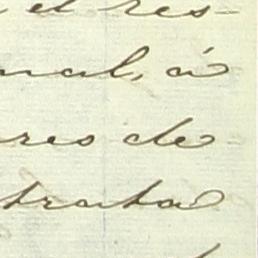 el res-
nal, á
res de
trata